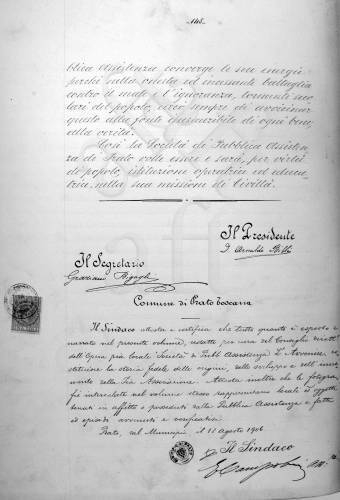 blica Assistenza converge le sue energie
perchè nella onesta ed incessante battaglia
contro il male e l'ignoranza, tormenti seco-
lari del popolo, cercò sempre di avvicinar
questo alla fonte inesauribile di ogni bene,
alla verità.
Così la Società di Pubblica Assisten-
za di Prato volle essere e sarà, per virtù
di popolo, istituzione operatrice ed educa-
trice nella sua missione di Civiltà.
Il Presidente
Il Segretario
Graziano
Comune di Prato Toscana
Il Sindaco attesta e certifica che tutto quanto è esposto e
narrato nel presente volume, redatto per cura del Consiglio
dell'Opera pia locale Società di Pubb. Assistenza L'Avvenire,
stituisce la storia fedele delle origini, dello sviluppo e dell'
mento della Pia Associazione. Attesta inoltre che le fotogra-
fie intercalate nel volume stesso rappresentano locali ed oggetti
tenuti in affitto o posseduti dalla Pubblica Assistenza e fatti
ed episodi avvenuti e verificatisi.
Prato, dal Municipio li 11 agosto 1906
Il Sindaco